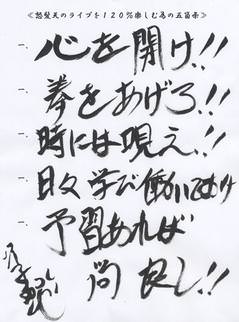 ≪怒髪天のライブを120%楽しむ為の五箇条≫
一、心を開け!!
一、拳をあげろ!!
一、時には唄え!!
一、日々学び働いておけ
一、予習あれば
尚良し!!